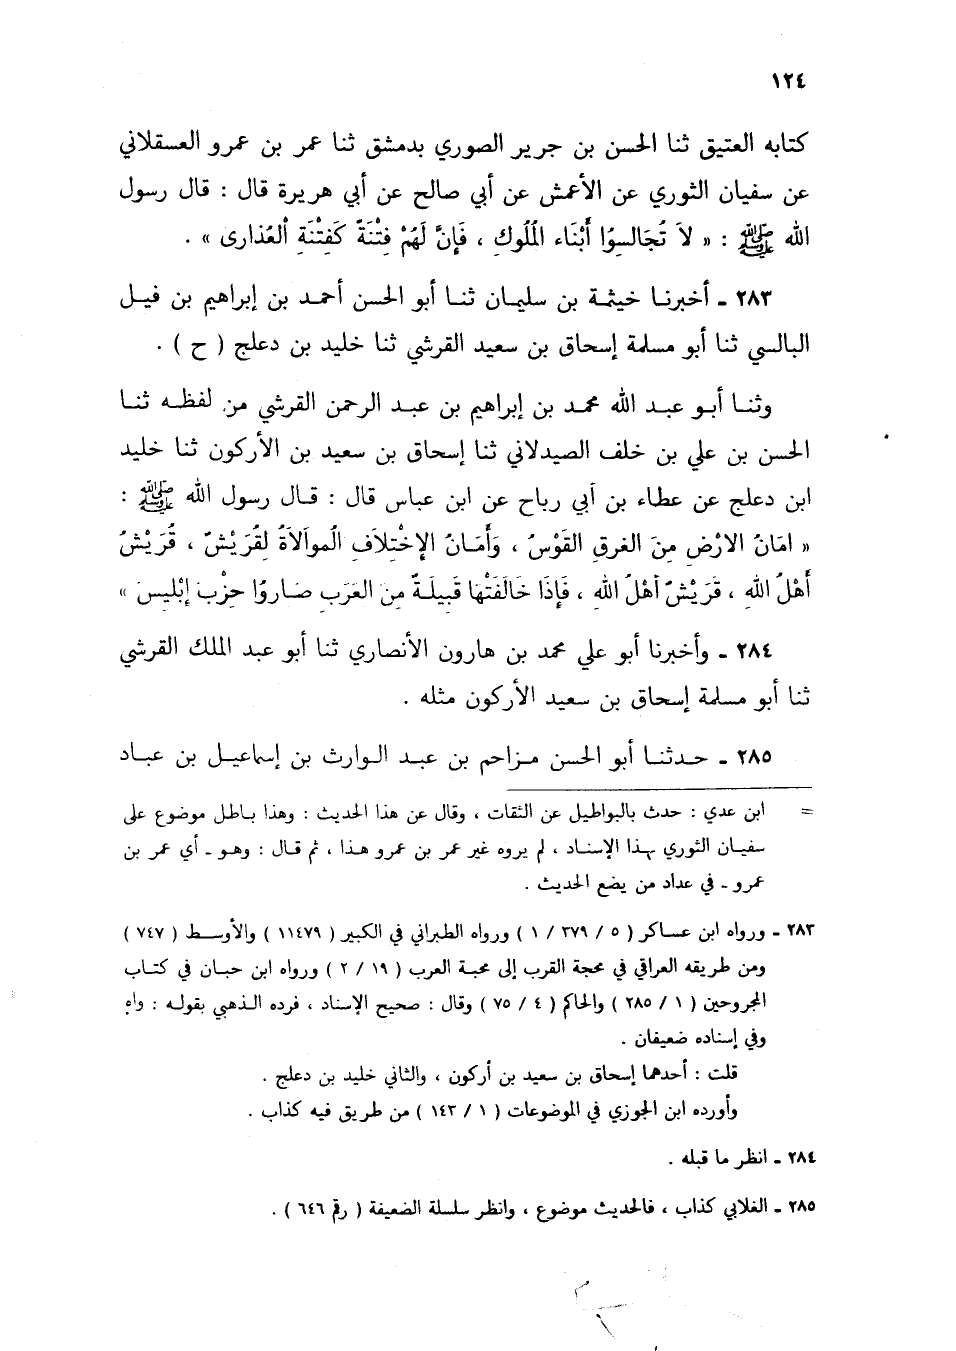 ١٢٤
كتابه العتيق ثنا الحسن بن جرير الصوري بدمشق ثنا عمر بن عمرو العسقلاني
عن سفيان الثوري عن الأعمش عن أبي صالح عن أبي هريرة قال : قال رسول
الله ﷺ : « لاَ تُجَالسِوُا أَبْنَاء المُلُوكِ ، فَإِنَّ لَهُمْ فِتْنَةً كَفِتْنَةِ اْلعُذارى » .
٢٨٣ ـ أخبرنا خيثمة بن سليمان ثنا أبو الحسن أحمد بن إبراهيم بن فيل
البالسي ثنا أبو مسلمة إسحاق بن سعيد القرشي ثنا خليد بن دعلج ( ح ) .
وثنا أبو عبد الله محمد بن إبراهيم بن عبد الرحمن القرشي من لفظه ثنا
الحسن بن علي بن خلف الصيدلاني ثنا إسحاق بن سعيد بن الأركون ثنا خليد
ابن دعلج عن عطاء بن أبي رباح عن ابن عباس قال : قال رسول الله ﷺ :
« امَانُ الارْضِ مِنَ الغرقِ القَوْسُ ، وَأَمَانُ الإخْتِلاَفِ الْموالاَةُ لقُرَيْشٌ ، قُرَيْشُ
أَهْلُ اللهِ ، قَرَيْشٌ أهْلُ اللهِ ، فَإِذَا خَالَفَتْهَا قَبِيلَةٌ مِنَ العَرَبِ صَارُوا حِزْبَ إبْلِيسَ »
٢٨٤ ـ وأخبرنا أبو علي محمد بن هارون الأنصاري ثنا أبو عبد الملك القرشي
ثنا أبو مسلمة إسحاق بن سعيد الأركون مثله .
٢٨٥ ـ حدثنا أبو الحسن مزاحم بن عبد الوارث بن إسماعيل بن عباد
= ابن عدي : حدث بالبواطيل عن الثقات ، وقال عن هذا الحديث : وهذا باطل موضوع على
سفيان الثوري بهذا الإسناد ، لم يروه غير عمر بن عمرو هذا ، ثم قال : وهو ـ أي عمر بن
عمرو ـ في عداد من يضع الحديث .
٢٨٣ ـ ورواه ابن عساكر ( ٥ / ٣٧٩ / ١ ) ورواه الطبراني في الكبير ( ١١٤٧٩ ) والأوسط ( ٧٤٧ )
ومن طريقه العراقي في محجة القرب إلى محبة العرب ( ١٩ / ٢ ) ورواه ابن حبان في كتاب
المجروحين ( ١ / ٢٨٥ ) والحاكم ( ٤ / ٧٥ ) وقال : صحيح الإسناد ، فرده الذهبي بقوله : واهٍ
وفي إسناده ضعيفان .
قلت : أحدهما إسحاق بن سعيد بن أركون ، والثاني خليد بن دعلج .
وأورده ابن الجوزي في الموضوعات ( ١ / ١٤٣ ) من طريق فيه كذاب .
٢٨٤ ـ انظر ما قبله .
٢٨٥ ـ الغلابي كذاب ، فالحديث موضوع ، وانظر سلسلة الضعيفة ( رقم ٦٤٦ ) .